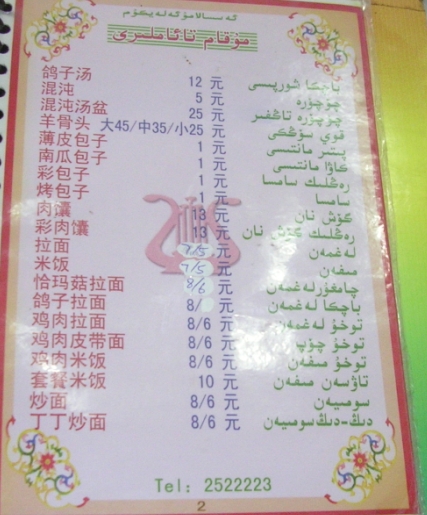 ئەسسالامۇئەلەيكۇم
مۇقام تائاملىرى
鸽子汤 12 元 باچكا شورپىسى
混沌 5 元 چۆچۈرە
混沌汤盆 25 元 چۆچۈرە تاڭفىر
羊骨头 大45/中35/小25 元 قوي سۆڭىكى
薄皮包子 1 元 پىتىر مانتىسى
南瓜包子 1 元 كاۋا مانتىسى
彩包子 1 元 رەڭلىك سامسا
烤包子 1 元 سامسا
肉馕 13 元 گۆش نان
彩肉馕 13 元 رەڭلىك گۆش نان
拉面 7/5 元 لەغمەن
米饭 7/5 元 مىفەن
恰玛菇拉面 8/6 元 چامغۇرلەغمەن
鸽子拉面 8/ 元 باچكا لەغمەن
鸡肉拉面 8/6 元 توخۇ لەغمەن
鸡肉皮带面 8/6 元 توخۇ چۆپ
鸡肉米饭 8/6 元 توخۇ مىفەن
套餐米饭 10 元 تاۋسەن مىفەن
炒面 8/6 元 سومىيەن
丁丁炒面 8/6 元 دىڭ-دىڭ سومىيەن
Tel: 2522223
2